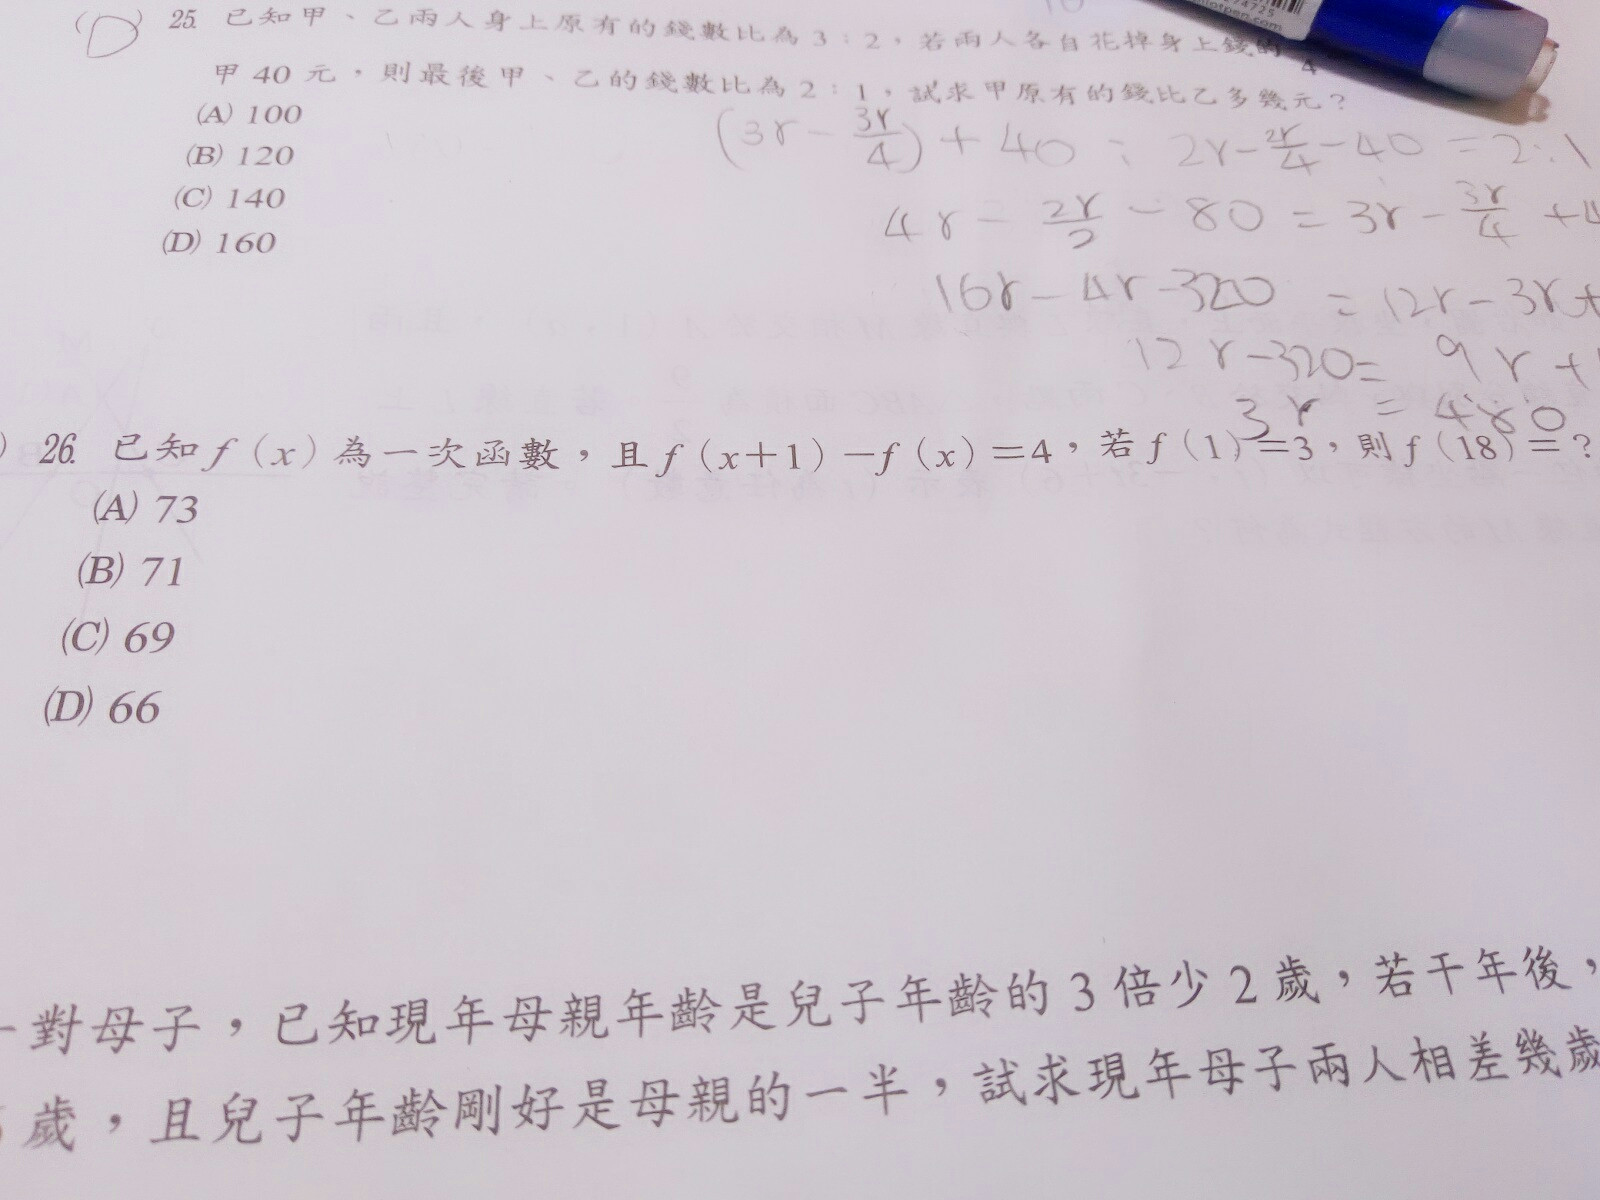 (D) 25. 已知甲、乙兩人身上原有的錢數比為3:2,若兩人各自花掉身上錢的 4
甲40元,則最後甲、乙的錢數比為2:1,試求甲原有的錢比乙多幾元?
(A) 100
(B) 120
(C) 140
(D) 160
(3r - 3r/4) + 40 : 2r - 2r/4 - 40 = 2:1
4r - 2r/2 - 80 = 3r - 3r/4 + 4
16r - 4r - 320 = 12r - 3r +
12r - 320 = 9r +
3r = 480
) 26. 已知f(x)為一次函數,且f(x+1)-f(x)=4,若f(1)=3,則f(18)=?
(A) 73
(B) 71
(C) 69
(D) 66
一對母子,已知現年母親年齡是兒子年齡的3倍少2歲,若干年後,
歲,且兒子年齡剛好是母親的一半,試求現年母子兩人相差幾歲